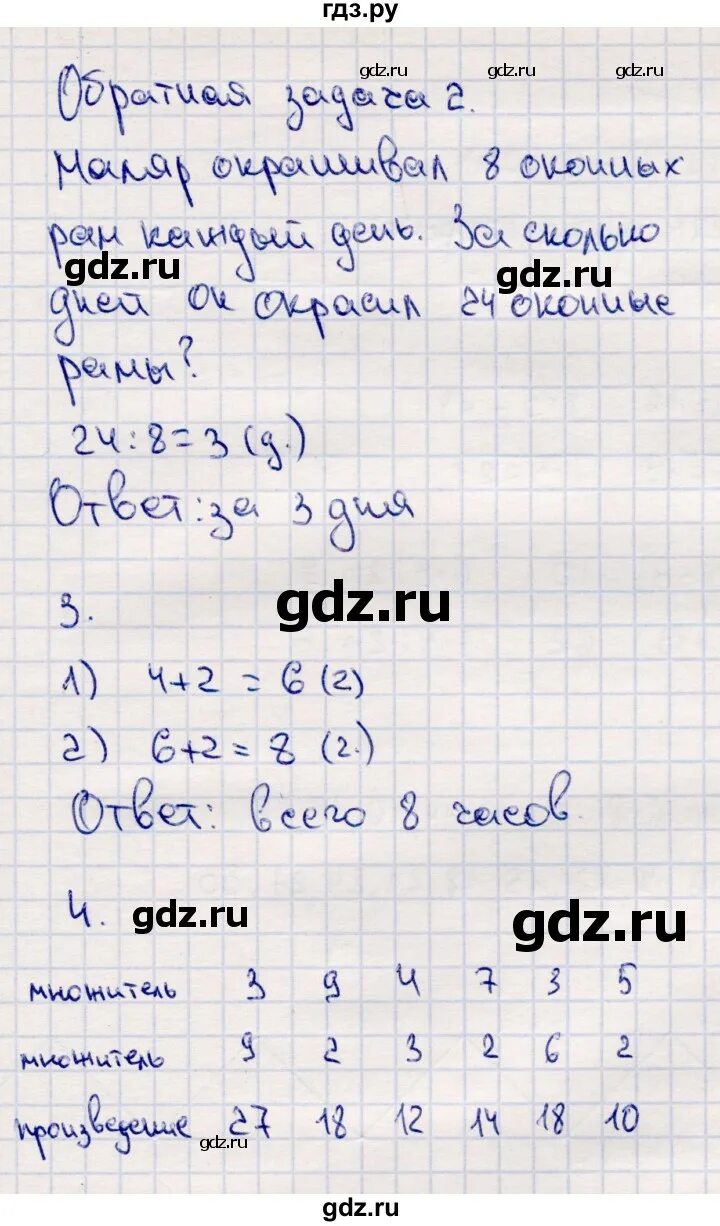 гдз.ру
gdz.ru gdz.ru gdz.ru
Обратная задача 2.
Маляр окрашивал 8 оконных
рам каждый день. За сколько
gdz.ru gdz.ru
дней он окрасил 24 оконные
рамы?
24:8=3 (д.)
Ответ: за 3 дня
gdz.ru
3.
1) 4+2 = 6 (г)
2) 6+2 = 8 (г.)
Ответ: всего 8 часов.
4. gdz.ru gdz.ru
множитель 3 9 4 7 3 5
множитель 9 2 3 2 6 2
произведение 27 18 12 14 18 10
gdz.ru gdz.ru
gdz.ru